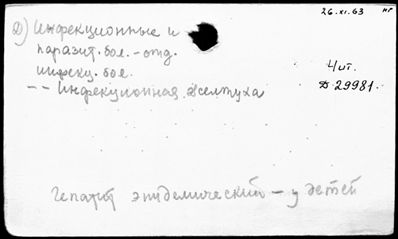 26.XI.63 нг
Д) Инфекционные и
паразит. бол. - отд.
инфекц. бол.
-- Инфекционная желтуха
Чит.
Д 29981.
Гепатит эпидемический - у детей